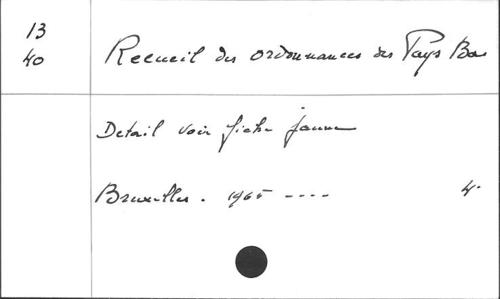 13
40
Recueil des ordonnances des Pays Bas
Detail voir fiche jaune
Bruxelles. 1965 ----
4°